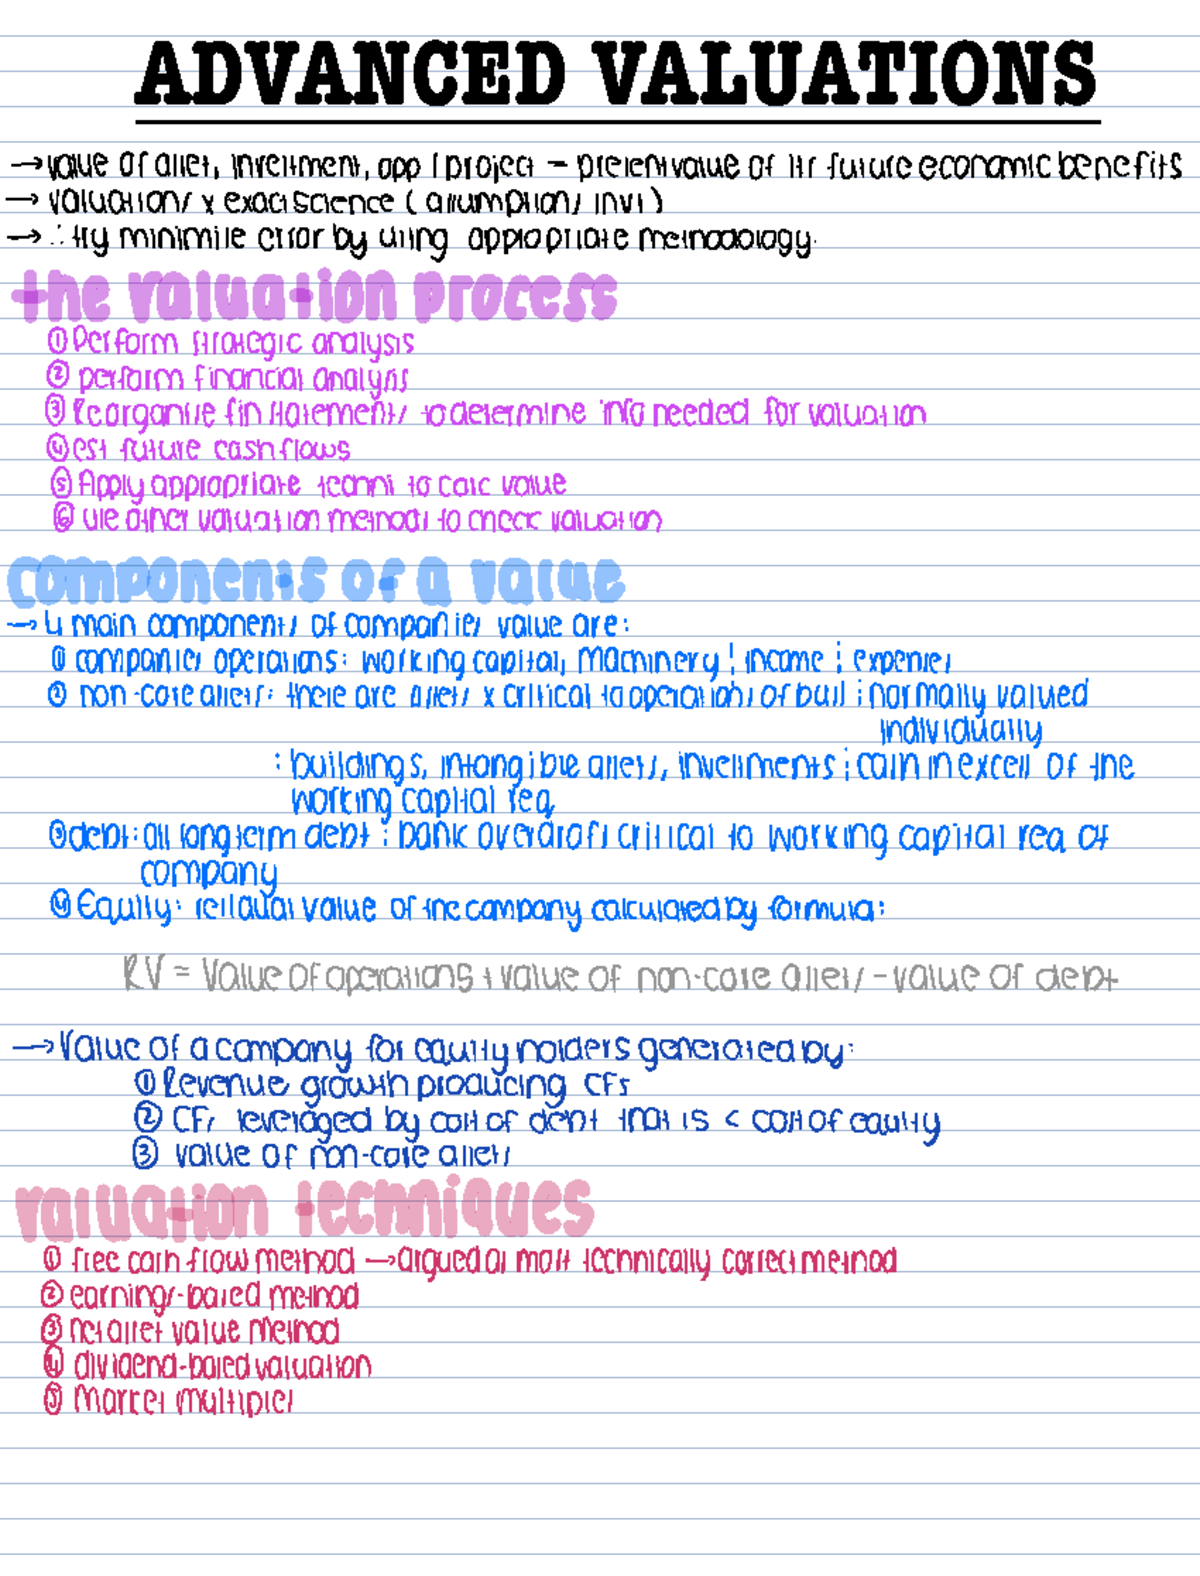 ADVANCED VALUATIONS
→ value of asset, investment, opp / project = present value of its future economic benefits
→ valuations x exact science (assumptions inv!)
→ ∴ try minimise error by using appropriate methodology.
the valuation process
① Perform strategic analysis
② perform financial analysis
③ Reorganise fin statements to determine info needed for valuation
④ est future cash flows
⑤ Apply appropriate techni to calc value
⑥ use other valuation methods to check valuation
components of a value
→ 4 main components of companies value are:
① companies operations: working capital, machinery ; income ; expenses
② non-core assets: these are assets x critical to operations of bus ; normally valued
individually
: buildings, intangible assets, investments ; cash in excess of the
working capital req.
③ debt: all long term debt ; bank overdraft critical to working capital req of
company
④ Equity: residual value of the company calculated by formula:
RV = Value of operations + value of non-core assets - value of debt
→ Value of a company for equity holders generated by:
① Revenue growth producing CFs
② CFs leveraged by cost of debt that is < cost of equity
③ value of non-core assets
valuation techniques
① free cash flow method → argued as most technically correct method
② earnings-based method
③ net asset value method
④ dividend-based valuation
⑤ Market multiples